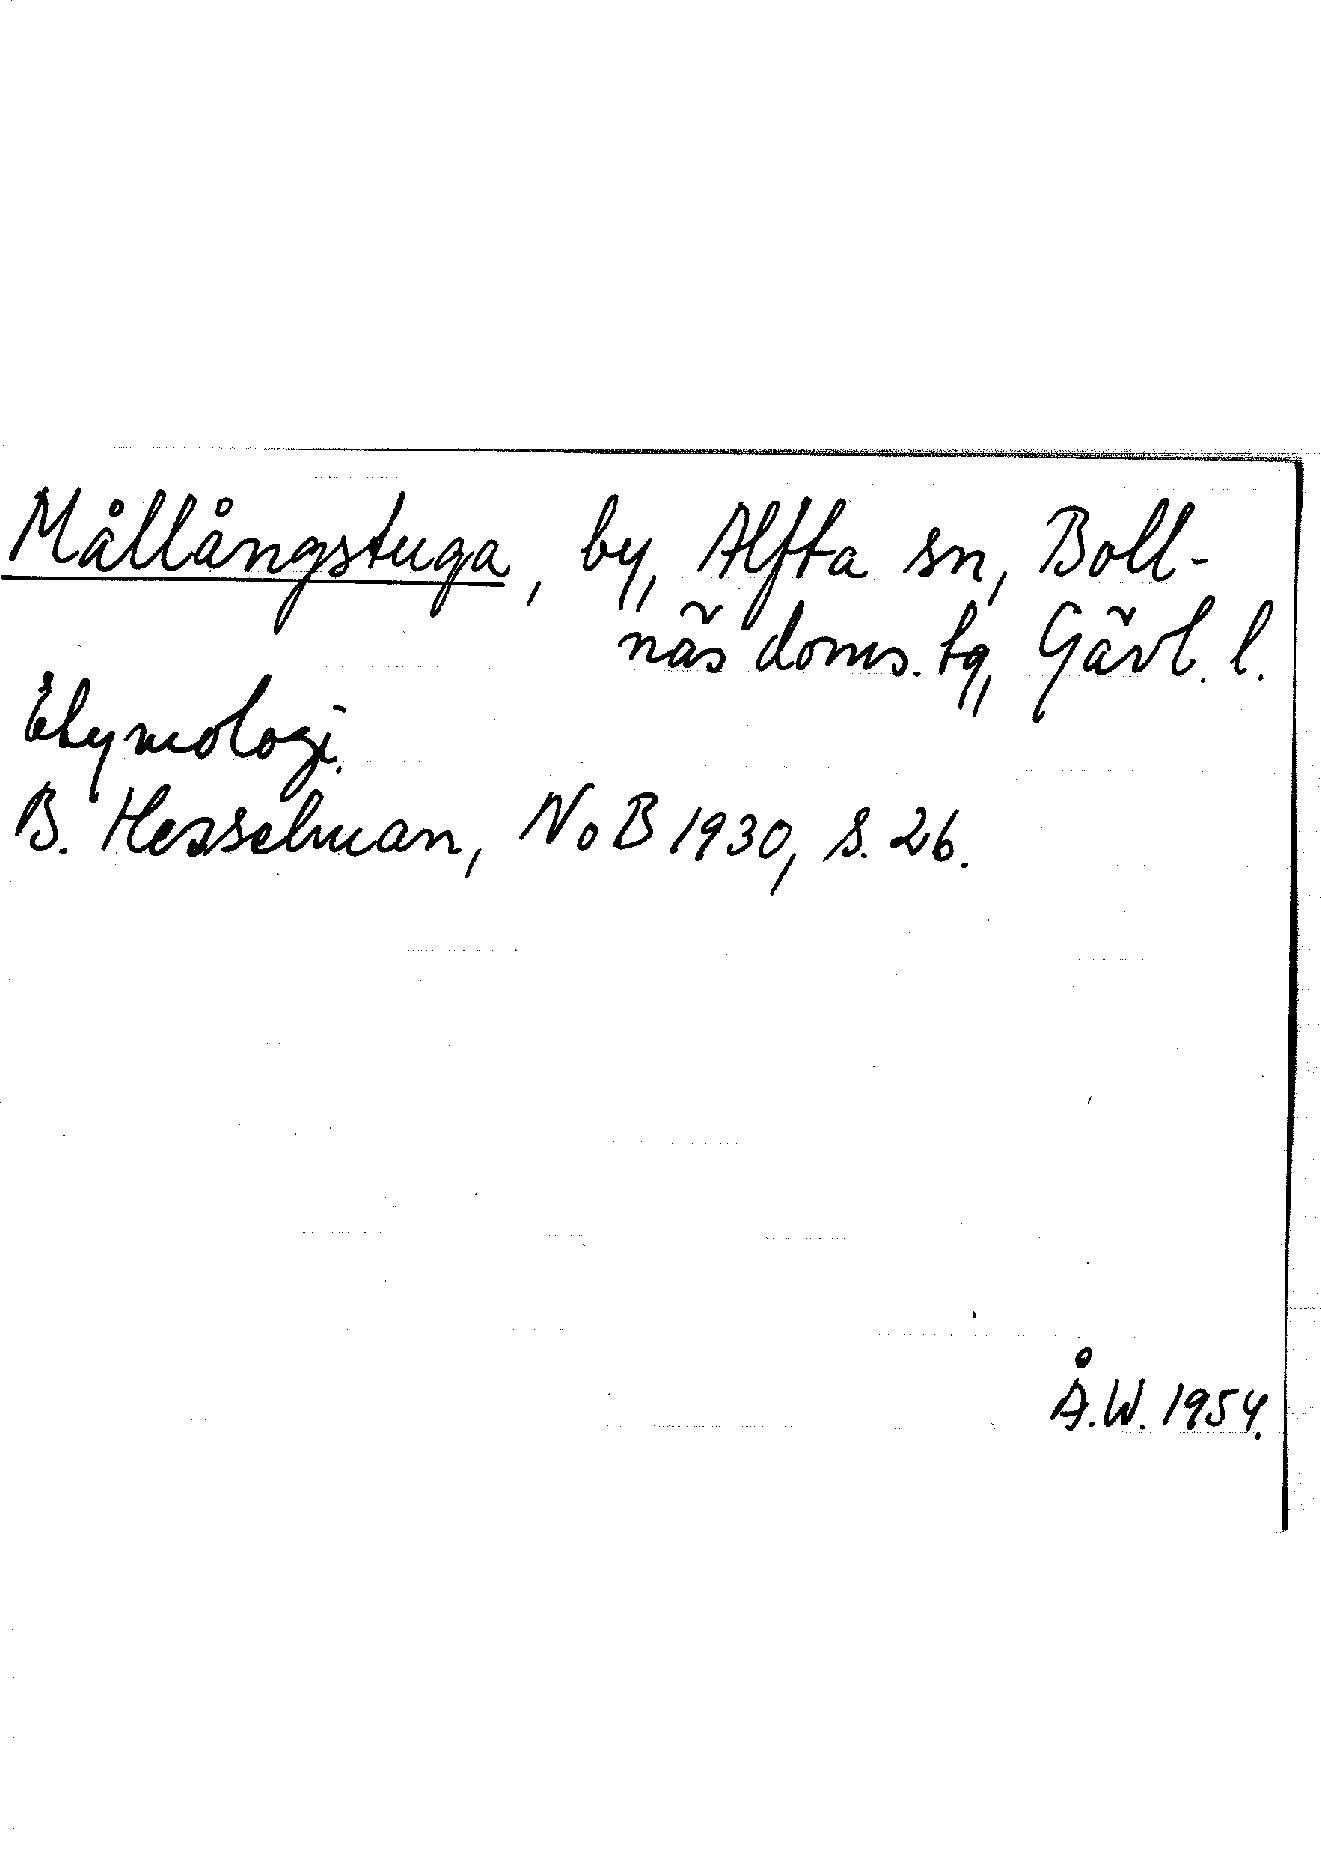 Mållångstuga, by, Alfta sn, Boll-
näs doms. tg, Gävl. l.
Etymologi.
B. Hesselman, NoB 1930, s. 26.
Å.W. 1954.